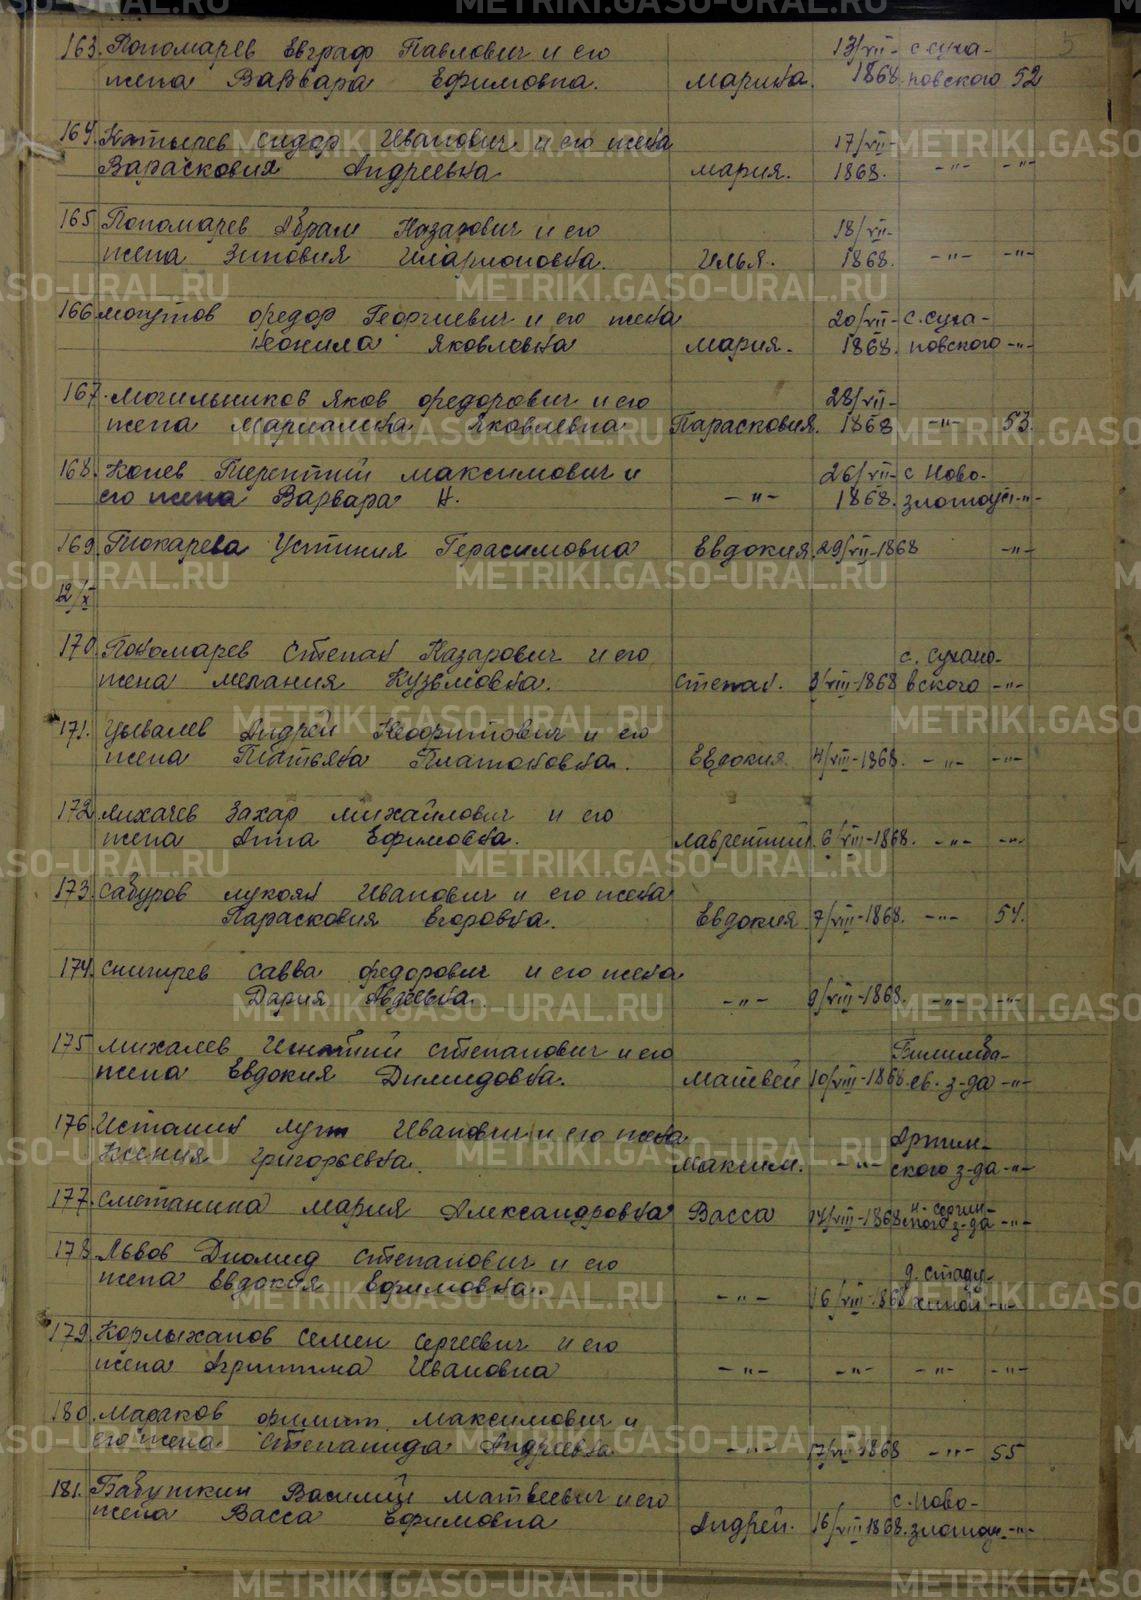 5
163. Пономарев Евграф Павлович и его 13/VII- с. суха-
жена Варвара Ефимовна. Марина. 1868. новского 52
164. Сидор Иванович и его жена 17/VII-
Варасковия Андреевна Мария. 1868. -"- -"-
165 Пономарев Абрам Назарович и его 18/VII-
жена Зиновия Иларионовна. Илья. 1868. -"- -"-
166 Могутов Федор Георгиевич и его жена 20/VII- с. суха-
Неонила Яковлевна Мария. 1868. новского -"-
167. Могильников Яков Федорович и его 28/VII-
жена Мариамна Яковлевна Парасковия. 1868 -"- 53.
168. Копев Терентий Максимович и 26/VII- с Ново-
его жена Варвара Н. -"- 1868. златоуст -"-
169. Токарева Устиния Герасимовна Евдокия. 29/VII-1868 -"-
12/X
170. Пономарев Степан Назарович и его с. Сухано-
жена Мелания Кузьмовна. Степан. 3/VIII-1868 вского -"-
171. Цывалев Андрей Неофитович и его
жена Татьяна Платоновна. Евдокия. 4/VIII-1868. -"- -"-
172 Лихачев Захар Михайлович и его
жена Анна Ефимовна. Лаврентий 6/VIII-1868. -"- -"-
173. Сабуров Лукоян Иванович и его жена
Парасковия Егоровна. Евдокия 7/VIII-1868. -"- 54.
174. Снигирев Савва Федорович и его жена
Дария Авдеевна. -"- 9/VIII-1868. -"- -"-
175 Михалев Игнатий Степанович и его Билимба-
жена Евдокия Димидовна. Матвей 10/VIII-1868 ев. з-да -"-
176 Истомин Лупп Иванович и его жена Артин-
Ксения Григорьевна. Максим. -"- ского з-да -"-
177. Сметанина Мария Александровна Васса 14/VIII-1868 н-сергин-
ского з-да -"-
178. Львов Диомид Степанович и его д. стаду-
жена Евдокия Ефимовна. -"- 16/VIII-1868 хиной -"-
179. Корлыханов Семен Сергеевич и его
жена Агриппина Ивановна -"- -"- -"- -"-
180. Мараков Филипп Максимович и
его жена Степанида Андреевна -"- 17/VIII-1868 -"- 55
181. Бабушкин Василий Матвеевич и его с. Ново-
жена Васса Ефимовна Андрей. 16/VIII 1868. златоу. -"-
METRIKI.GASO-URAL.RU